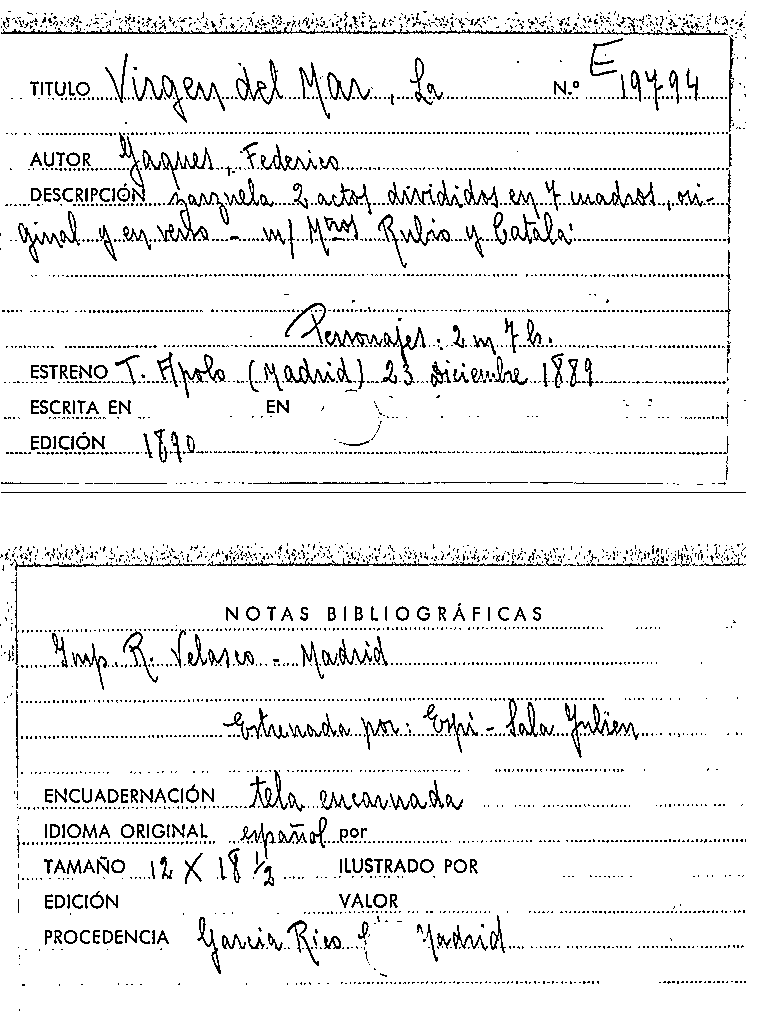 TITULO Virgen del Mar, La N.º E 19794
AUTOR Jaques, Federico
DESCRIPCIÓN zarzuela 2 actos divididos en 7 cuadros, ori-
ginal y en verso - m/ Mtros Rubio y Catalá
Personajes: 2 m 7 h.
ESTRENO T. Apolo (Madrid) 23 Diciembre 1889
ESCRITA EN EN
EDICIÓN 1890
NOTAS BIBLIOGRÁFICAS
Imp. R. Velasco - Madrid
Estrenada por: Espi - Sala Julien
ENCUADERNACIÓN tela encarnada
IDIOMA ORIGINAL español por
TAMAÑO 12 X 18 ½ ILUSTRADO POR
EDICIÓN VALOR
PROCEDENCIA Garcia Rico Madrid